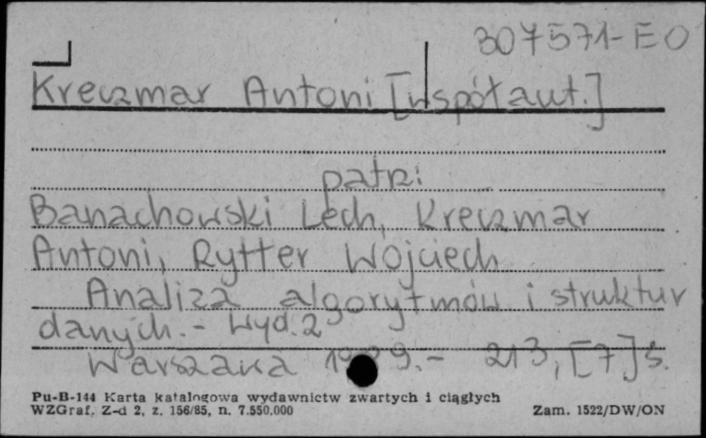 307571-EO
Kreczmar Antoni [współaut.]
patrz:
Banachowski Lech, Kreczmar
Antoni, Rytter Wojciech
Analiza algorytmów i struktur
danych. - Wyd. 2
Warszawa - 213, [7] s.
Pu-B-144 Karta katalogowa wydawnictw zwartych i ciągłych
WZGraf. Z-d 2, z. 156/85, n. 7.550.000 Zam. 1522/DW/ON